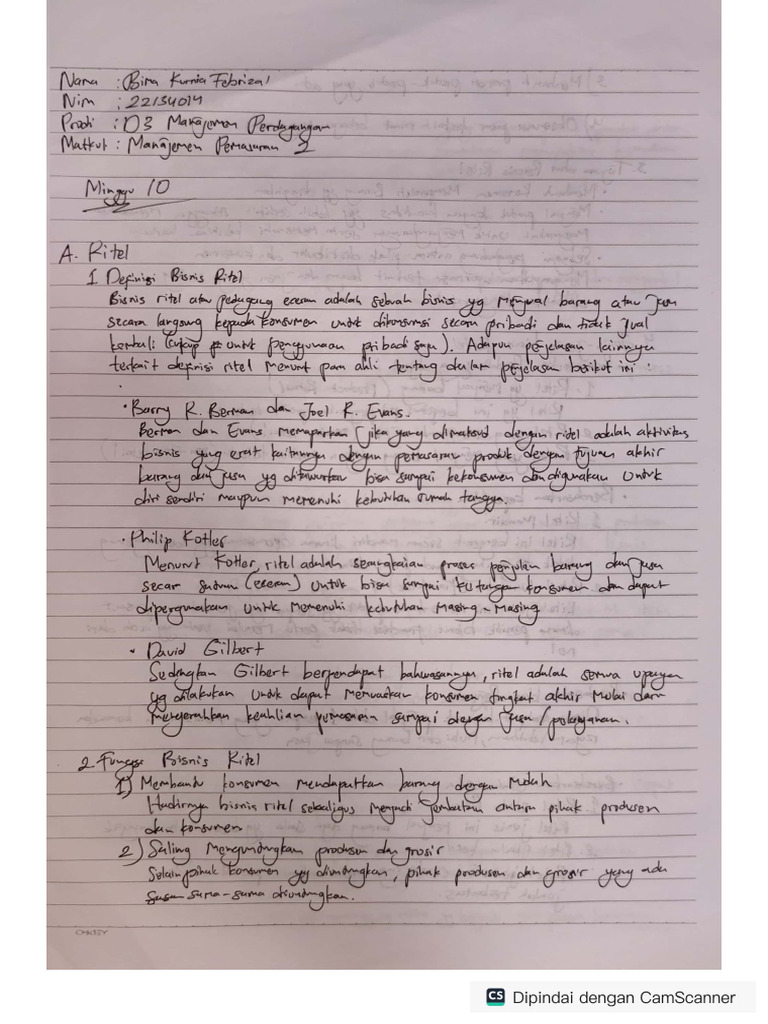 Nama : Bima Kurnia Febrizal
Nim : 22134014
Prodi : D3 Manajemen Perdagangan
Matkul : Manajemen Pemasaran 2
Minggu 10
A. Ritel
1. Definisi Bisnis Ritel
Bisnis ritel atau pedagang eceran adalah sebuah bisnis yg menjual barang atau jasa
secara langsung kepada konsumen untuk dikonsumsi secara pribadi dan tidak jual
kembali (cukup untuk penggunaan pribadi saja). Adapun penjelasan lainnya
terkait definisi ritel menurut para ahli tentang dalam penjelasan berikut ini :
• Barry R. Berman dan Joel R. Evans.
Berman dan Evans memaparkan jika yang dimaksud dengan ritel adalah aktivitas
bisnis yang erat kaitannya dengan pemasaran produk dengan tujuan akhir
barang dan jasa yg ditawarkan bisa sampai kekonsumen dan digunakan untuk
diri sendiri maupun memenuhi kebutuhan rumah tangga.
• Philip Kotler
Menurut Kotler, ritel adalah serangkaian proses penjulan barang dan jasa
secar (eceran) untuk bisa sampai ke tangan konsumen dan dapat
dipergunakan untuk memenuhi kebutuhan masing-masing
• David Gilbert
Sedangkan Gilbert berpendapat bahwasannya, ritel adalah semua upaya
yg dilakukan untuk dapat memuaskan konsumen tingkat akhir mulai dari
mengerahkan keahlian pemasaran sampai dengan jasa / pelayanan.
2. Fungsi Bisnis Ritel
1) Membantu konsumen mendapatkan barang dengan mudah
Hadirnya bisnis ritel sekaligus menjadi jembatan antara pihak produsen
dan konsumen
2) Saling menguntungkan produsen dan grosir
Selain pihak konsumen yg diuntungkan, pihak produsen dan grosir yang ada
sama-sama diuntungkan.
CS Dipindai dengan CamScanner